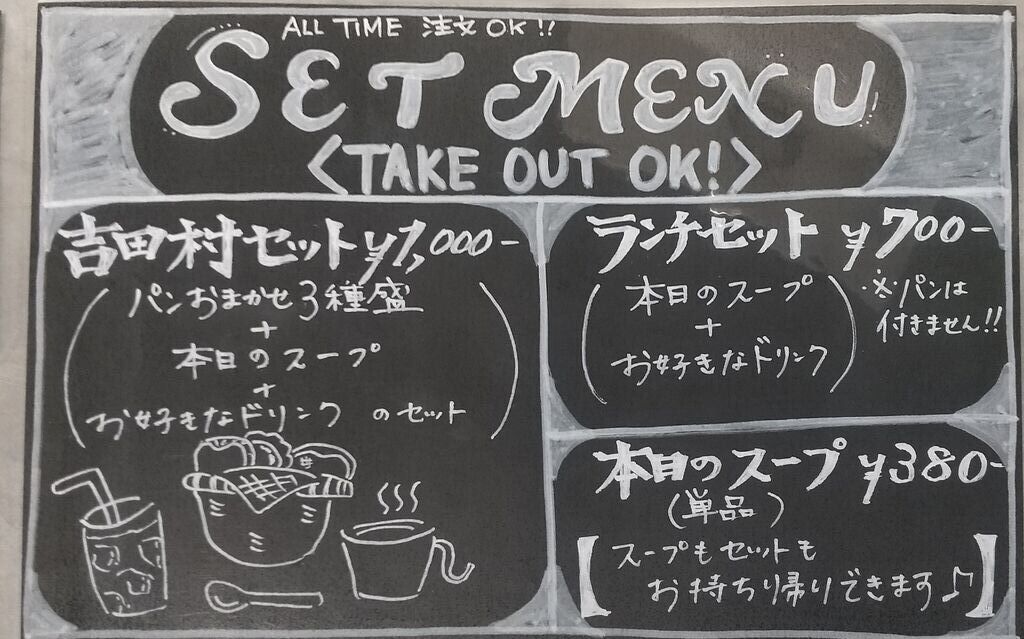 ALL TIME 注文 OK!!
SET MENU
<TAKE OUT OK!>
吉田村セット ¥1,000-
(パンおまかせ3種盛
+
本日のスープ
+
お好きなドリンク のセット)
ランチセット ¥700-
(本日のスープ
+
お好きなドリンク)
※パンは
付きません!!
本日のスープ ¥380-
(単品)
【スープもセットも
お持ち帰りできます♪】